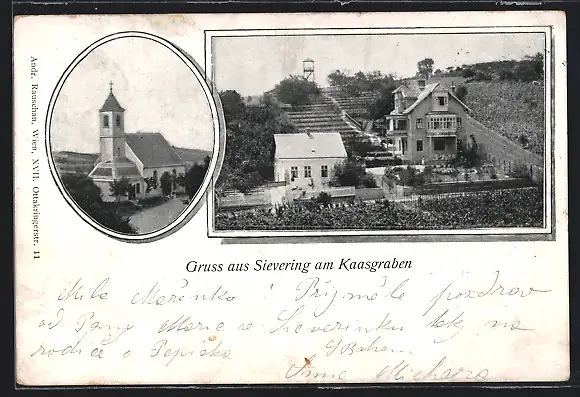 Andr. Rauschan, Wien, XVII. Ottakringerstr. 11
Gruss aus Sievering am Kaasgraben
Milá Mařenko! Přijměte pozdrav
od Panny Marie v Sieverinku taky na
rodiče a Pepíčka
S Bohem
Anna